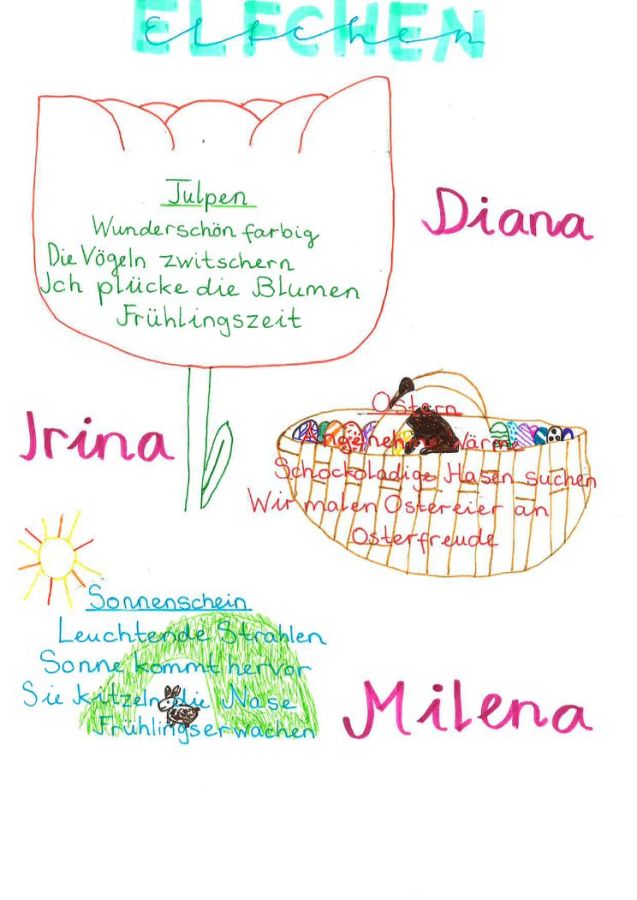 ELFCHEN
Elfchen
Tulpen
Wunderschön farbig
Die Vögeln zwitschern
Ich plücke die Blumen
Frühlingszeit
Diana
Irina
Ostern
Angenehme Wärme
Schockoladige Hasen suchen
Wir malen Ostereier an
Osterfreude
Sonnenschein
Leuchtende Strahlen
Sonne kommt hervor
Sie kitzeln die Nase
Frühlingserwachen
Milena